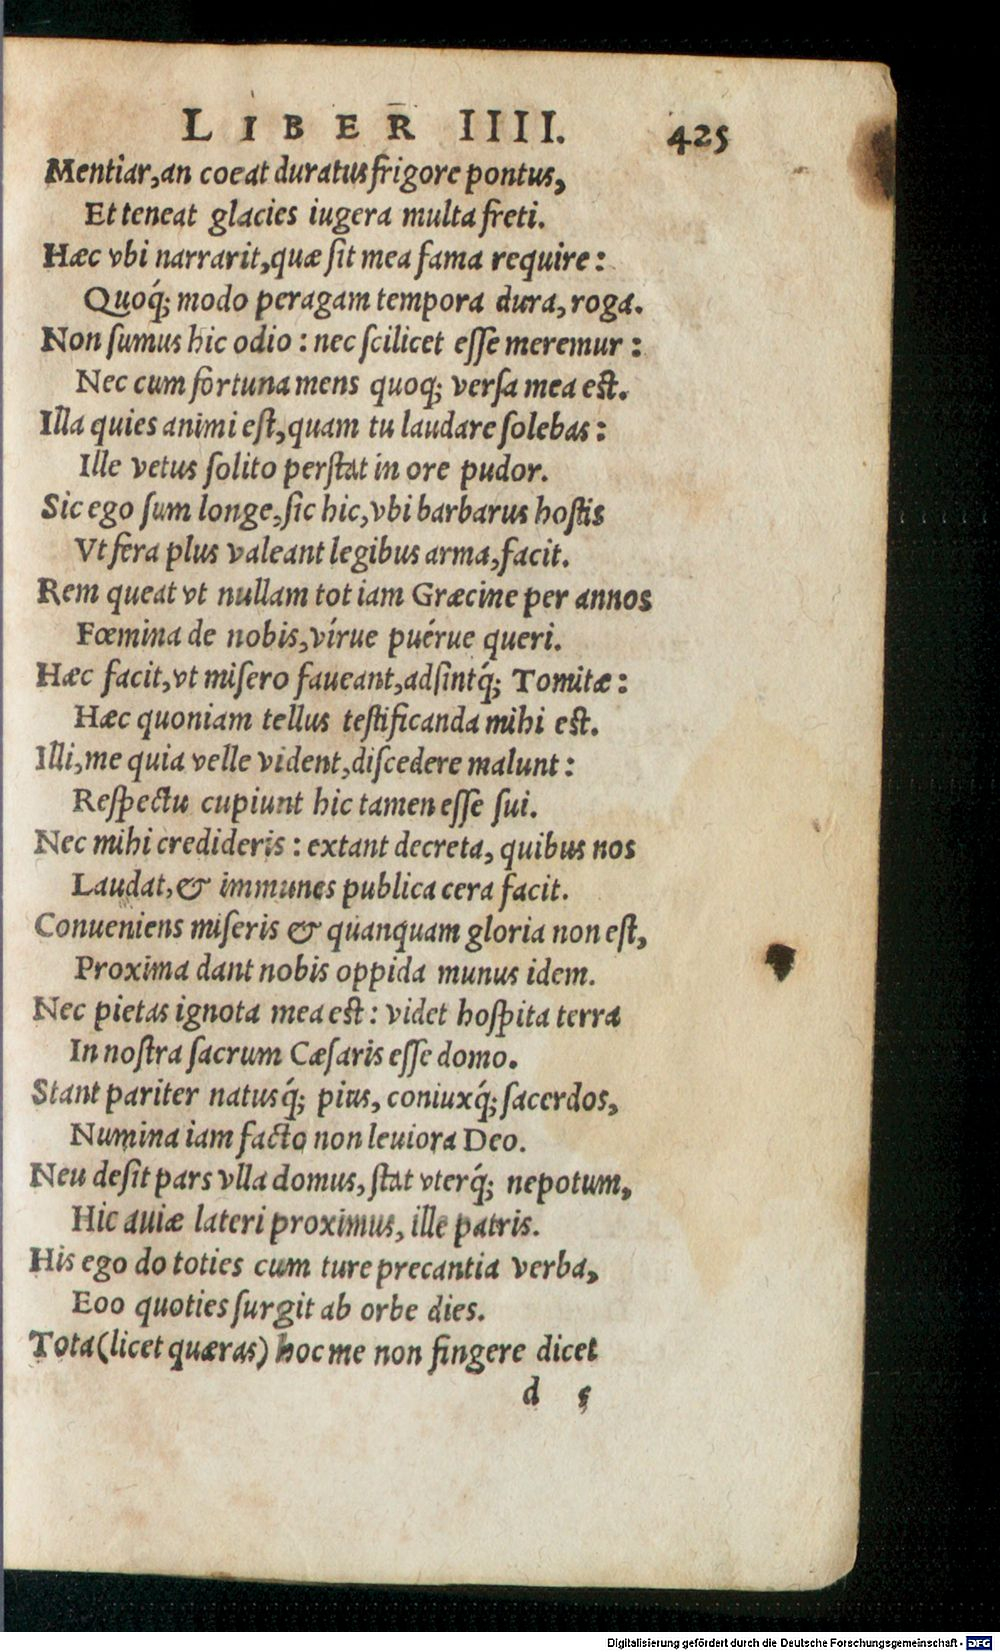 LIBER IIII. 425
Mentiar, an coeat duratus frigore pontus,
Et teneat glacies iugera multa freti.
Hæc vbi narrarit, quæ sit mea fama require:
Quoq́; modo peragam tempora dura, roga.
Non sumus hic odio: nec scilicet esse meremur:
Nec cum fortuna mens quoq; versa mea est.
Illa quies animi est, quam tu laudare solebas:
Ille vetus solito perstat in ore pudor.
Sic ego sum longe, sic hic, vbi barbarus hostis
Vt fera plus valeant legibus arma, facit.
Rem queat vt nullam tot iam Græcine per annos
Fœmina de nobis, vírue puérue queri.
Hæc facit, vt misero faueant, adsintq́; Tomitæ:
Hæc quoniam tellus testificanda mihi est.
Illi, me quia velle vident, discedere malunt:
Respectu cupiunt hic tamen esse sui.
Nec mihi credideris: extant decreta, quibus nos
Laudat, & immunes publica cera facit.
Conueniens miseris & quanquam gloria non est,
Proxima dant nobis oppida munus idem.
Nec pietas ignota mea est: videt hospita terra
In nostra sacrum Cæsaris esse domo.
Stant pariter natusq́; pius, coniuxq́; sacerdos,
Numina iam facto non leuiora Deo.
Neu desit pars vlla domus, stat vterq́; nepotum,
Hic auiæ lateri proximus, ille patris.
His ego do toties cum ture precantia verba,
Eoo quoties surgit ab orbe dies.
Tota (licet quæras) hoc me non fingere dicet
d 5
Digitalisierung gefördert durch die Deutsche Forschungsgemeinschaft - DFG